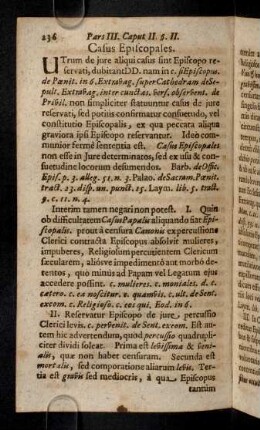 236 Pars III. Caput II. §. II.
Casus Episcopales.
UTrum de jure aliqui casus sint Episcopo re-
servati, dubitant DD. nam in c. si Episcopus.
de Pœnit. in 6. Extravag. super Cathedram de Se-
pult. Extravag. inter cunctas. vers. observent. de
Privil. non simpliciter statuuntur casus de jure
reservati, sed potius confirmatur consuetudo, vel
constitutio Episcopalis, ex qua peccata aliqua
graviora ipsi Episcopo reservantur. Ideo com-
munior fermè sententia est. Casus Episcopales
non esse in Jure determinatos, sed ex usu & con-
suetudine locorum desumendos. Barb. de Offic.
Episc. p. 3. alleg. 51. n. 3. Palao. de Sacram. Pœnit.
tract. 23. disp. un. punct. 15. Laym. lib. 5. tract.
c. 11. n. 4.
Interim tamen negari non potest. I. Quin
ob difficultatem Casus Papalis aliquando fiat Epi-
scopalis. prout à censura Canonis ex percussione
Clerici contracta Episcopus absolvit mulieres,
impuberes, Religiosum percutientem Clericum
sæcularem, aliòsve impedimentâ aut morbô de-
tentos, quò minùs ad Papam vel Legatum ejus
accedere possint. c. mulieres. c. moniales. d. c.
cætero. c. ea noscitur. c. quamvis. c. ult. de Sent.
excom. c. Religioso. c. eos qui. Eod. in 6.
II. Reservatur Episcopo de jure percussio
Clerici levis. c. pervenit. de Sent. excom. Est au-
tem hìc advertendum, quòd percussio quadrupli-
citer dividi soleat. Prima est levissima & seni-
alis, quæ non habet censuram. Secunda est
mortalis, sed comparatione aliarum levis. Ter-
tia est gravis sed mediocris, à qua Episcopus
tantùm